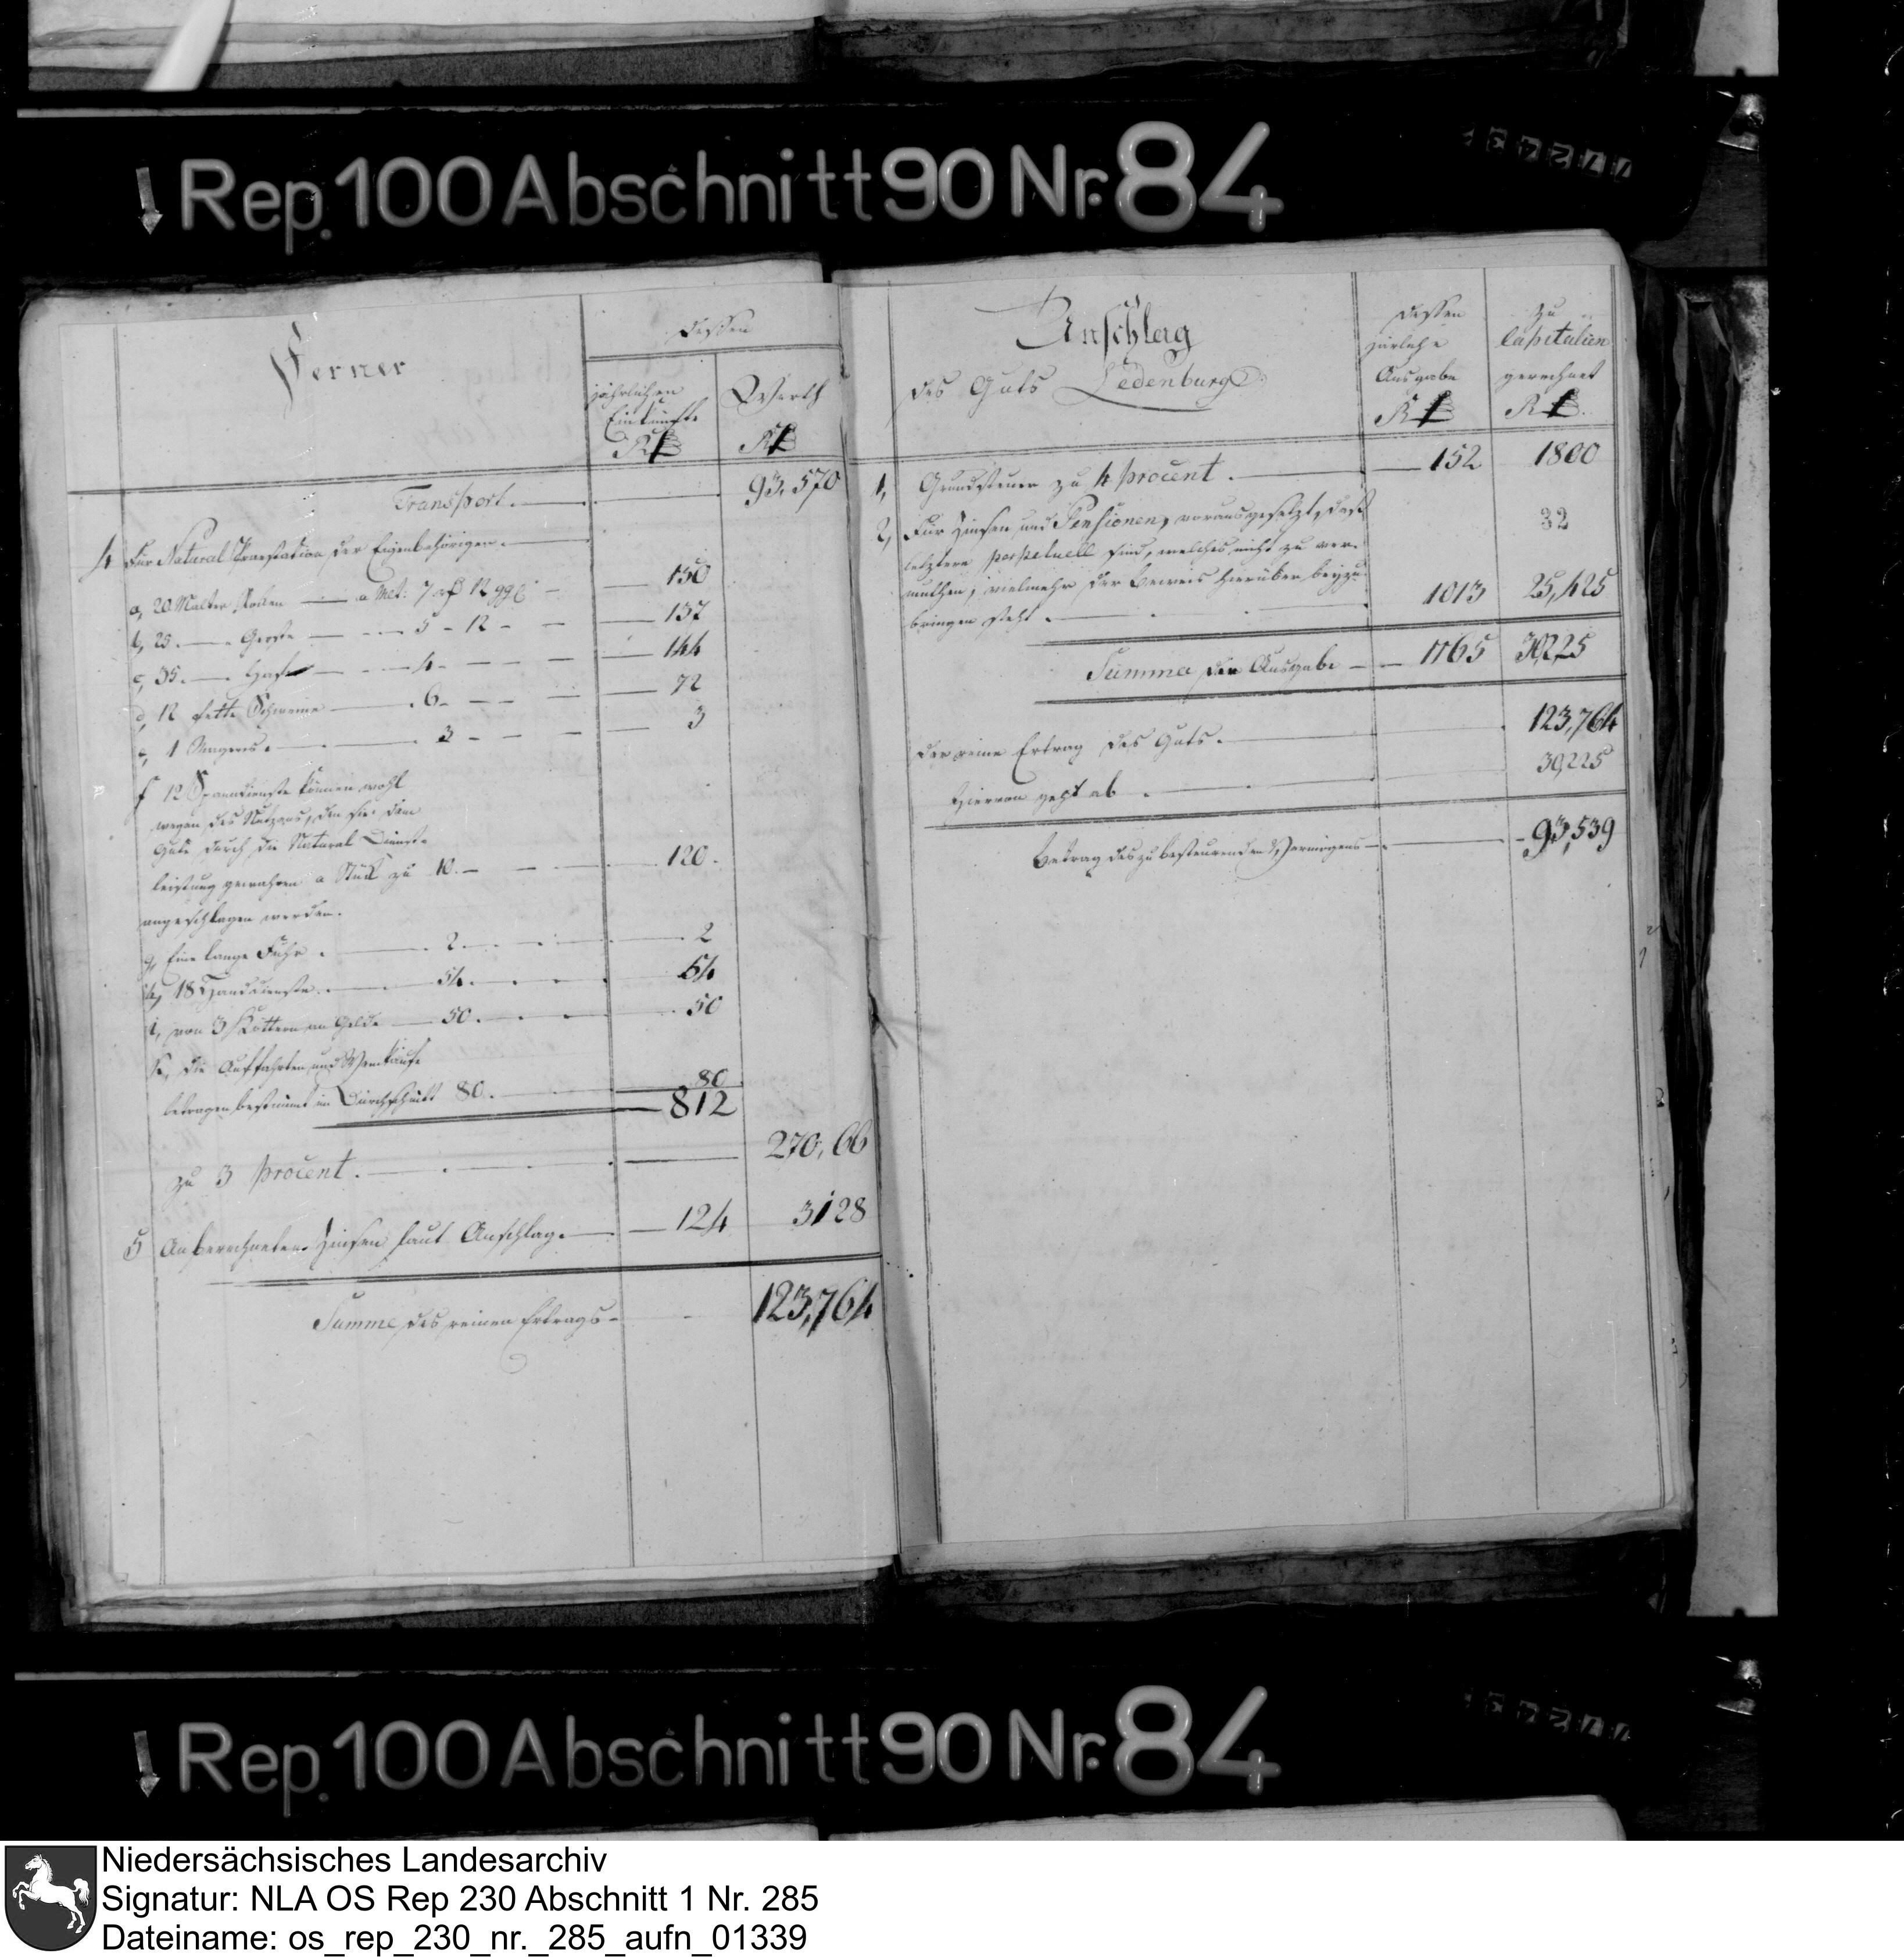 Rep. 100 Abschnitt 90 Nr. 84
Ferner
dessen
jährlichen
Einkünfte
Werth
Transport. 93,570
4 Für Natural Praestation der Eigenbehörigen.
a, 20 Malter Rocken a Mlt: 7 rß 12 ggl 150
b, 25. Gerste 5 - 12 - - 137
c, 35. Hafer 4. - - - 144
d, 12 fette Schweine 6. - - - 72
e, 1 Mageres. 3 - - - 3
f 12 Spanndienste können wohl
wegen des Nutzens, den sie dem
Gute durch die Natural Dienst-
leistung gewähren a Stück zu 10. - - 120.
angeschlagen werden.
g, Eine lange Fuhr. 2. 2
h, 18 Handdienste. 54. 54
i, von 3 Köttern an Gelde 50. 50
k, die Auffahrten und Weinkäufe
betragen bestimmt im Durchschnitt 80. 80
812
zu 3 procent. 270,66
5 An berechneten Zinsen laut Anschlag. 124 3128
Summe des reinen Ertrags - 123,764
Anschlag
des Guts Ledenburg
dessen
järliche
Ausgabe
zu
Capitalien
gerechnet
1, Grundsteuer zu 4 procent. 152 1800
2, Für Zinsen und Pensionen, vorausgesetzt, daß
32
letztere perpetuell sind, welches nicht zu ver-
muthen, vielmehr der Beweis hierüber beyzu-
bringen steht. 1013 25,425
Summa der Ausgabe 1165 30,225
Der reine Ertrag des Guts. 123,764
Hiervon geht ab. 30,225
Betrag des zu besteurenden Vermögens 93,539
Rep. 100 Abschnitt 90 Nr. 84
Niedersächsisches Landesarchiv
Signatur: NLA OS Rep 230 Abschnitt 1 Nr. 285
Dateiname: os_rep_230_nr._285_aufn_01339